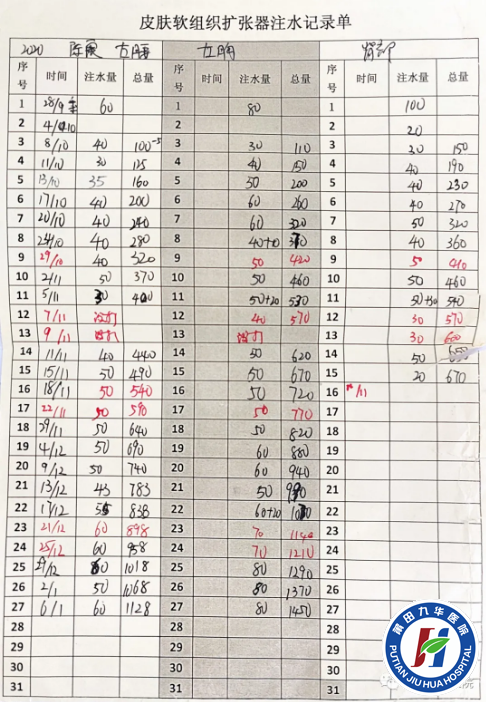 皮肤软组织扩张器注水记录单
2020 右胸 左胸 背部
序号 时间 注水量 总量 序号 时间 注水量 总量 序号 时间 注水量 总量
1 28/9 60 1 80 1 100
2 2 2 20
3 8/10 40 100 3 30 110 3 30 150
4 11/10 30 4 40 150 4 40 190
5 13/10 35 160 5 50 200 5 40 230
6 17/10 40 200 6 60 260 6 40 270
7 20/10 40 240 7 60 320 7 50 320
8 24/10 40 280 8 40+10 8 40 360
9 29/10 40 320 9 50 420 9 50 410
10 2/11 50 370 10 50 460 10 50 460
11 5/11 11 50+20 530 11
12 7/11 12 40 570 12 30 570
13 9/11 13 13 30 600
14 11/11 40 440 14 50 620 14 50 650
15 15/11 50 490 15 50 670 15 20 670
16 18/11 50 540 16 50 720 16
17 22/11 50 590 17 50 770 17
18 29/11 50 640 18 50 820 18
19 4/12 50 690 19 60 880 19
20 9/12 50 740 20 60 940 20
21 13/12 43 783 21 50 21
22 17/12 55 838 22 60+20 22
23 21/12 60 898 23 70 1140 23
24 25/12 60 958 24 70 1210 24
25 60 1018 25 80 1290 25
26 2/1 50 1068 26 80 1370 26
27 6/1 60 1128 27 80 1450 27
28 28 28
29 29 29
30 30 30
31 31 31
莆田九华医院
PUTIAN JIU HUA HOSPITAL